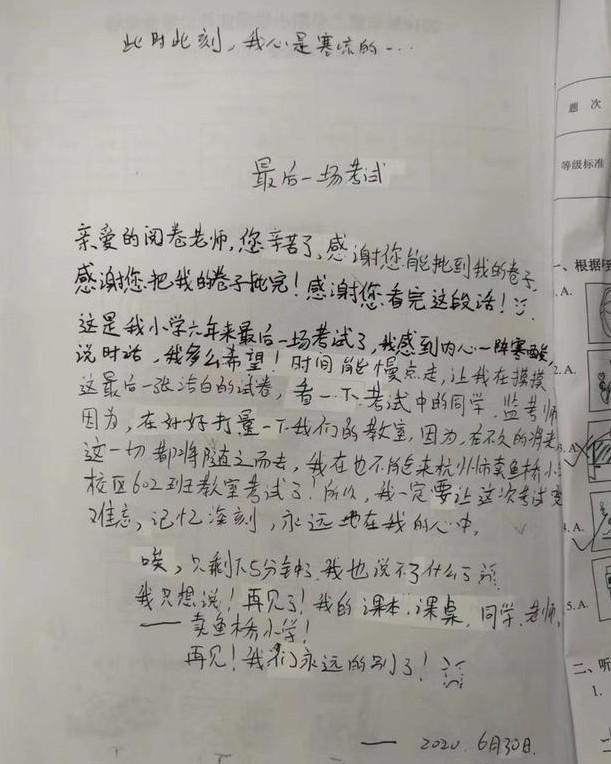 此时此刻，我心是寒凉的…
最后一场考试
亲爱的阅卷老师，您辛苦了，感谢您能批到我的卷子，
感谢您把我的卷子批完！感谢您看完这段话！
这是我小学六年来最后一场考试了，我感到内心一阵寒酸，
说时话，我多么希望！时间能慢点走，让我在摸摸
这最后一张洁白的试卷，看一下考试中的同学、监考师
因为，在好好打量一下我们的教室，因为，在不久的将来
这一切都将随之而去，我在也不能来杭州师卖鱼桥小
校区602班教室考试了！所以，我一定要让这次考试变
难忘，记忆深刻，永远地在我的心中。
唉，只剩下5分钟了，我也说不了什么了
我只想说！再见了！我的课本、课桌、同学、老师，
——卖鱼桥小学！
再见！我们永远的别了！
—— 2020.6月30日.
题 次
等级标准
一、根据
1.A.
2.A.
3.A.
4.A.
5.A.
二、听
1.